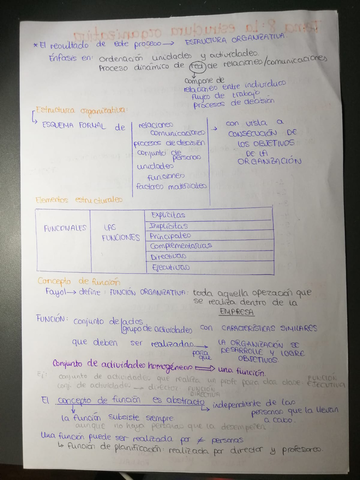 * El resultado de este proceso → ESTRUCTURA ORGANIZATIVA
Énfasis en: ordenación unidades y actividades
Proceso dinámico de red de relaciones/comunicaciones
compone de
relaciones entre individuos
flujos de trabajo
procesos de decisión
Estructura organizativa:
ESQUEMA FORMAL de
relaciones
comunicaciones
procesos de decisión
conjunto de personas
unidades
funciones
factores materiales
con vista a
CONSECUCIÓN DE
LOS OBJETIVOS
DE LA
ORGANIZACIÓN
Elementos estructurales:
FUNCIONALES
LAS
FUNCIONES
Explícitas
Implícitas
Principales
Complementarias
Directivas
Ejecutivas
Concepto de función:
Fayol → define: FUNCIÓN ORGANIZATIVA: toda aquella operación que
se realiza dentro de la
EMPRESA
FUNCIÓN: conjunto de
grupo de actividades con CARACTERÍSTICAS SIMILARES
que deben ser realizadas para que LA ORGANIZACIÓN SE
DESARROLLE Y LOGRE
OBJETIVOS
conjunto de actividades homogéneo → una función
conjunto de actividades que realiza
EJECUTIVA
El concepto de función es abstracto → independiente de las
personas que la llevan
a cabo
la función subsiste siempre
aunque no haya personas que la desempeñen
Una función puede ser realizada por ≠ personas
↳ función de planificación: realizada por director y profesores